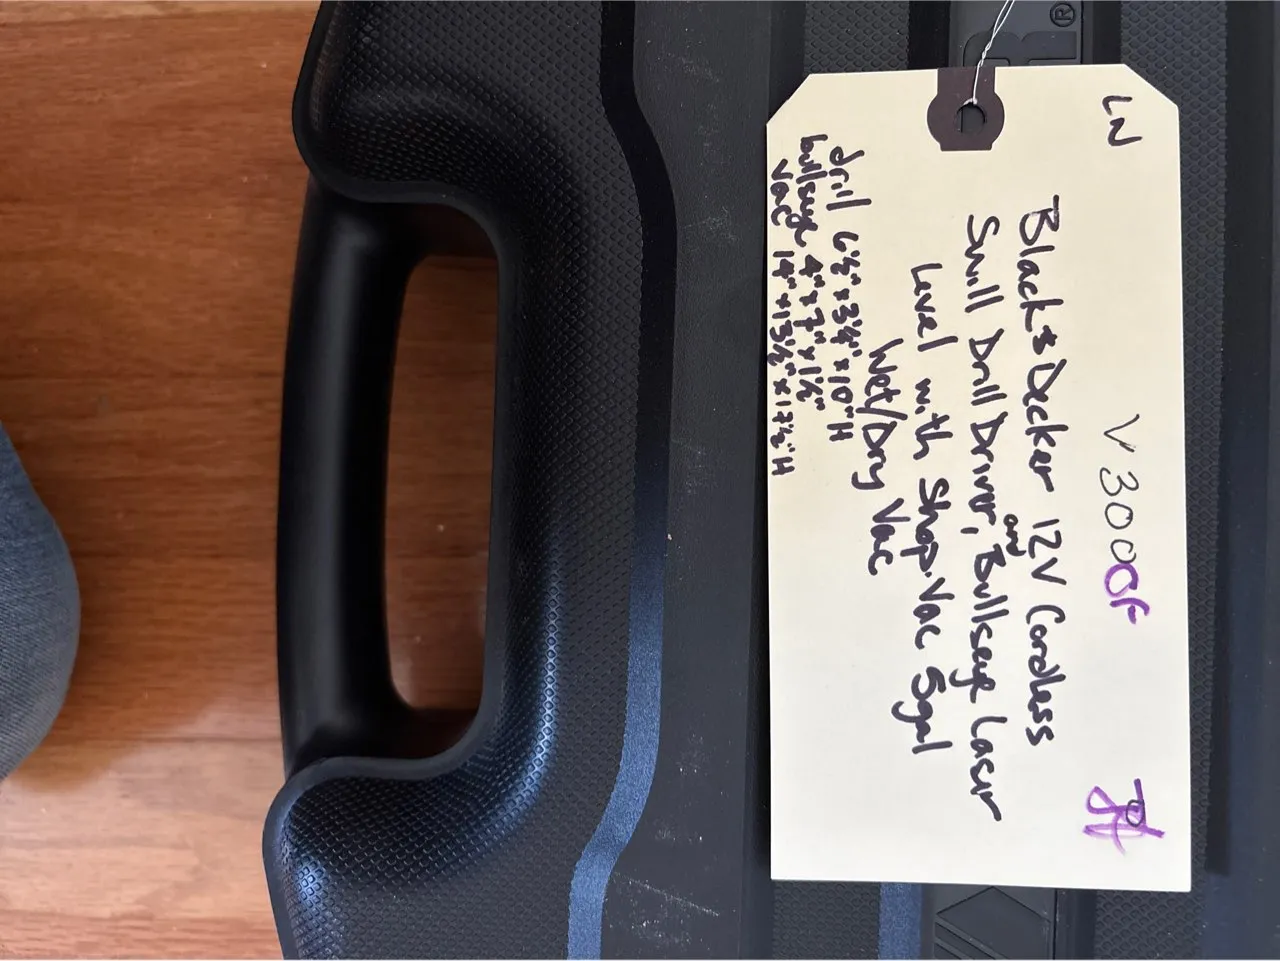 LN V3000F
Black & Decker 12V Cordless
Smill Drill Driver, and Bullseye Laser
Level with Shop·Vac 5gal
Wet/Dry Vac
drill 6½" x 3¼" x 10"H
bullseye 4" x 7" x 1½"
Vac 14" x 13½" x 17½"H
®